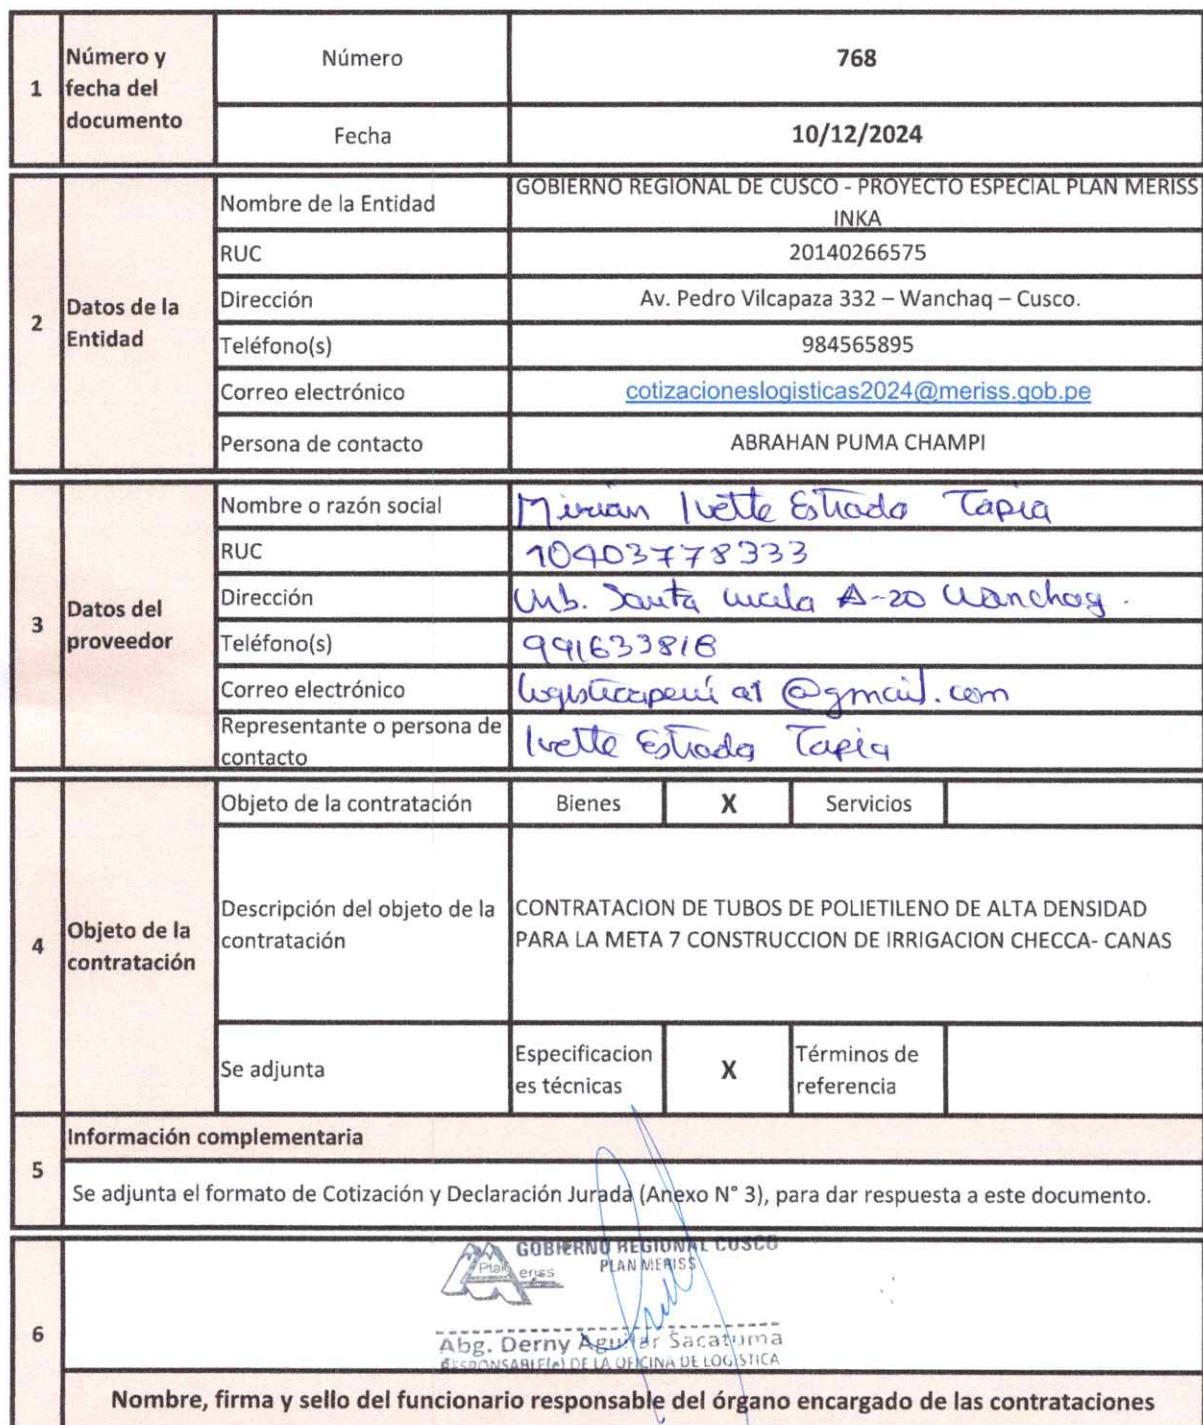 1
Número y
fecha del
documento
Número
768
Fecha
10/12/2024
2
Datos de la
Entidad
Nombre de la Entidad
GOBIERNO REGIONAL DE CUSCO - PROYECTO ESPECIAL PLAN MERISS
INKA
RUC
20140266575
Dirección
Av. Pedro Vilcapaza 332 – Wanchaq – Cusco.
Teléfono(s)
984565895
Correo electrónico
cotizacioneslogisticas2024@meriss.gob.pe
Persona de contacto
ABRAHAN PUMA CHAMPI
3
Datos del
proveedor
Nombre o razón social
Mirian Ivette Estrada Tapia
RUC
10403778333
Dirección
Urb. Santa A-20 Wanchaq.
Teléfono(s)
991633818
Correo electrónico
@gmail.com
Representante o persona de
contacto
Ivette Estrada Tapia
4
Objeto de la
contratación
Objeto de la contratación
Bienes
X
Servicios
Descripción del objeto de la
contratación
CONTRATACION DE TUBOS DE POLIETILENO DE ALTA DENSIDAD
PARA LA META 7 CONSTRUCCION DE IRRIGACION CHECCA- CANAS
Se adjunta
Especificacion
es técnicas
X
Términos de
referencia
5
Información complementaria
Se adjunta el formato de Cotización y Declaración Jurada (Anexo N° 3), para dar respuesta a este documento.
6
GOBIERNO REGIONAL CUSCO
PLAN MERISS
Plan
eriss
Abg. Derny Aguilar Sacatuma
RESPONSABLE(e) DE LA OFICINA DE LOGISTICA
Nombre, firma y sello del funcionario responsable del órgano encargado de las contrataciones